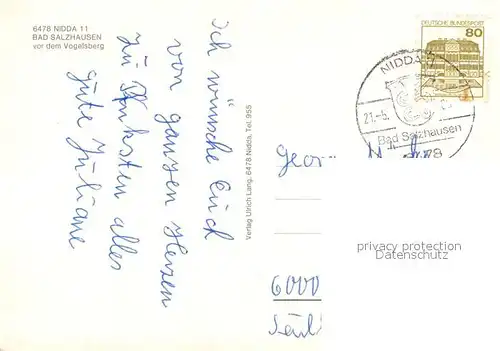 6478 NIDDA 11
BAD SALZHAUSEN
vor dem Vogelsberg
Ich wünsche Euch
von ganzen Herzen
zu Pfingsten alles
gute Juliane
Verlag Ulrich Lang, 6478 Nidda, Tel. 955
DEUTSCHE BUNDESPOST
80
NIDDA
21.-5.
Bad Salzhausen
Geor
6000
privacy protection
Datenschutz